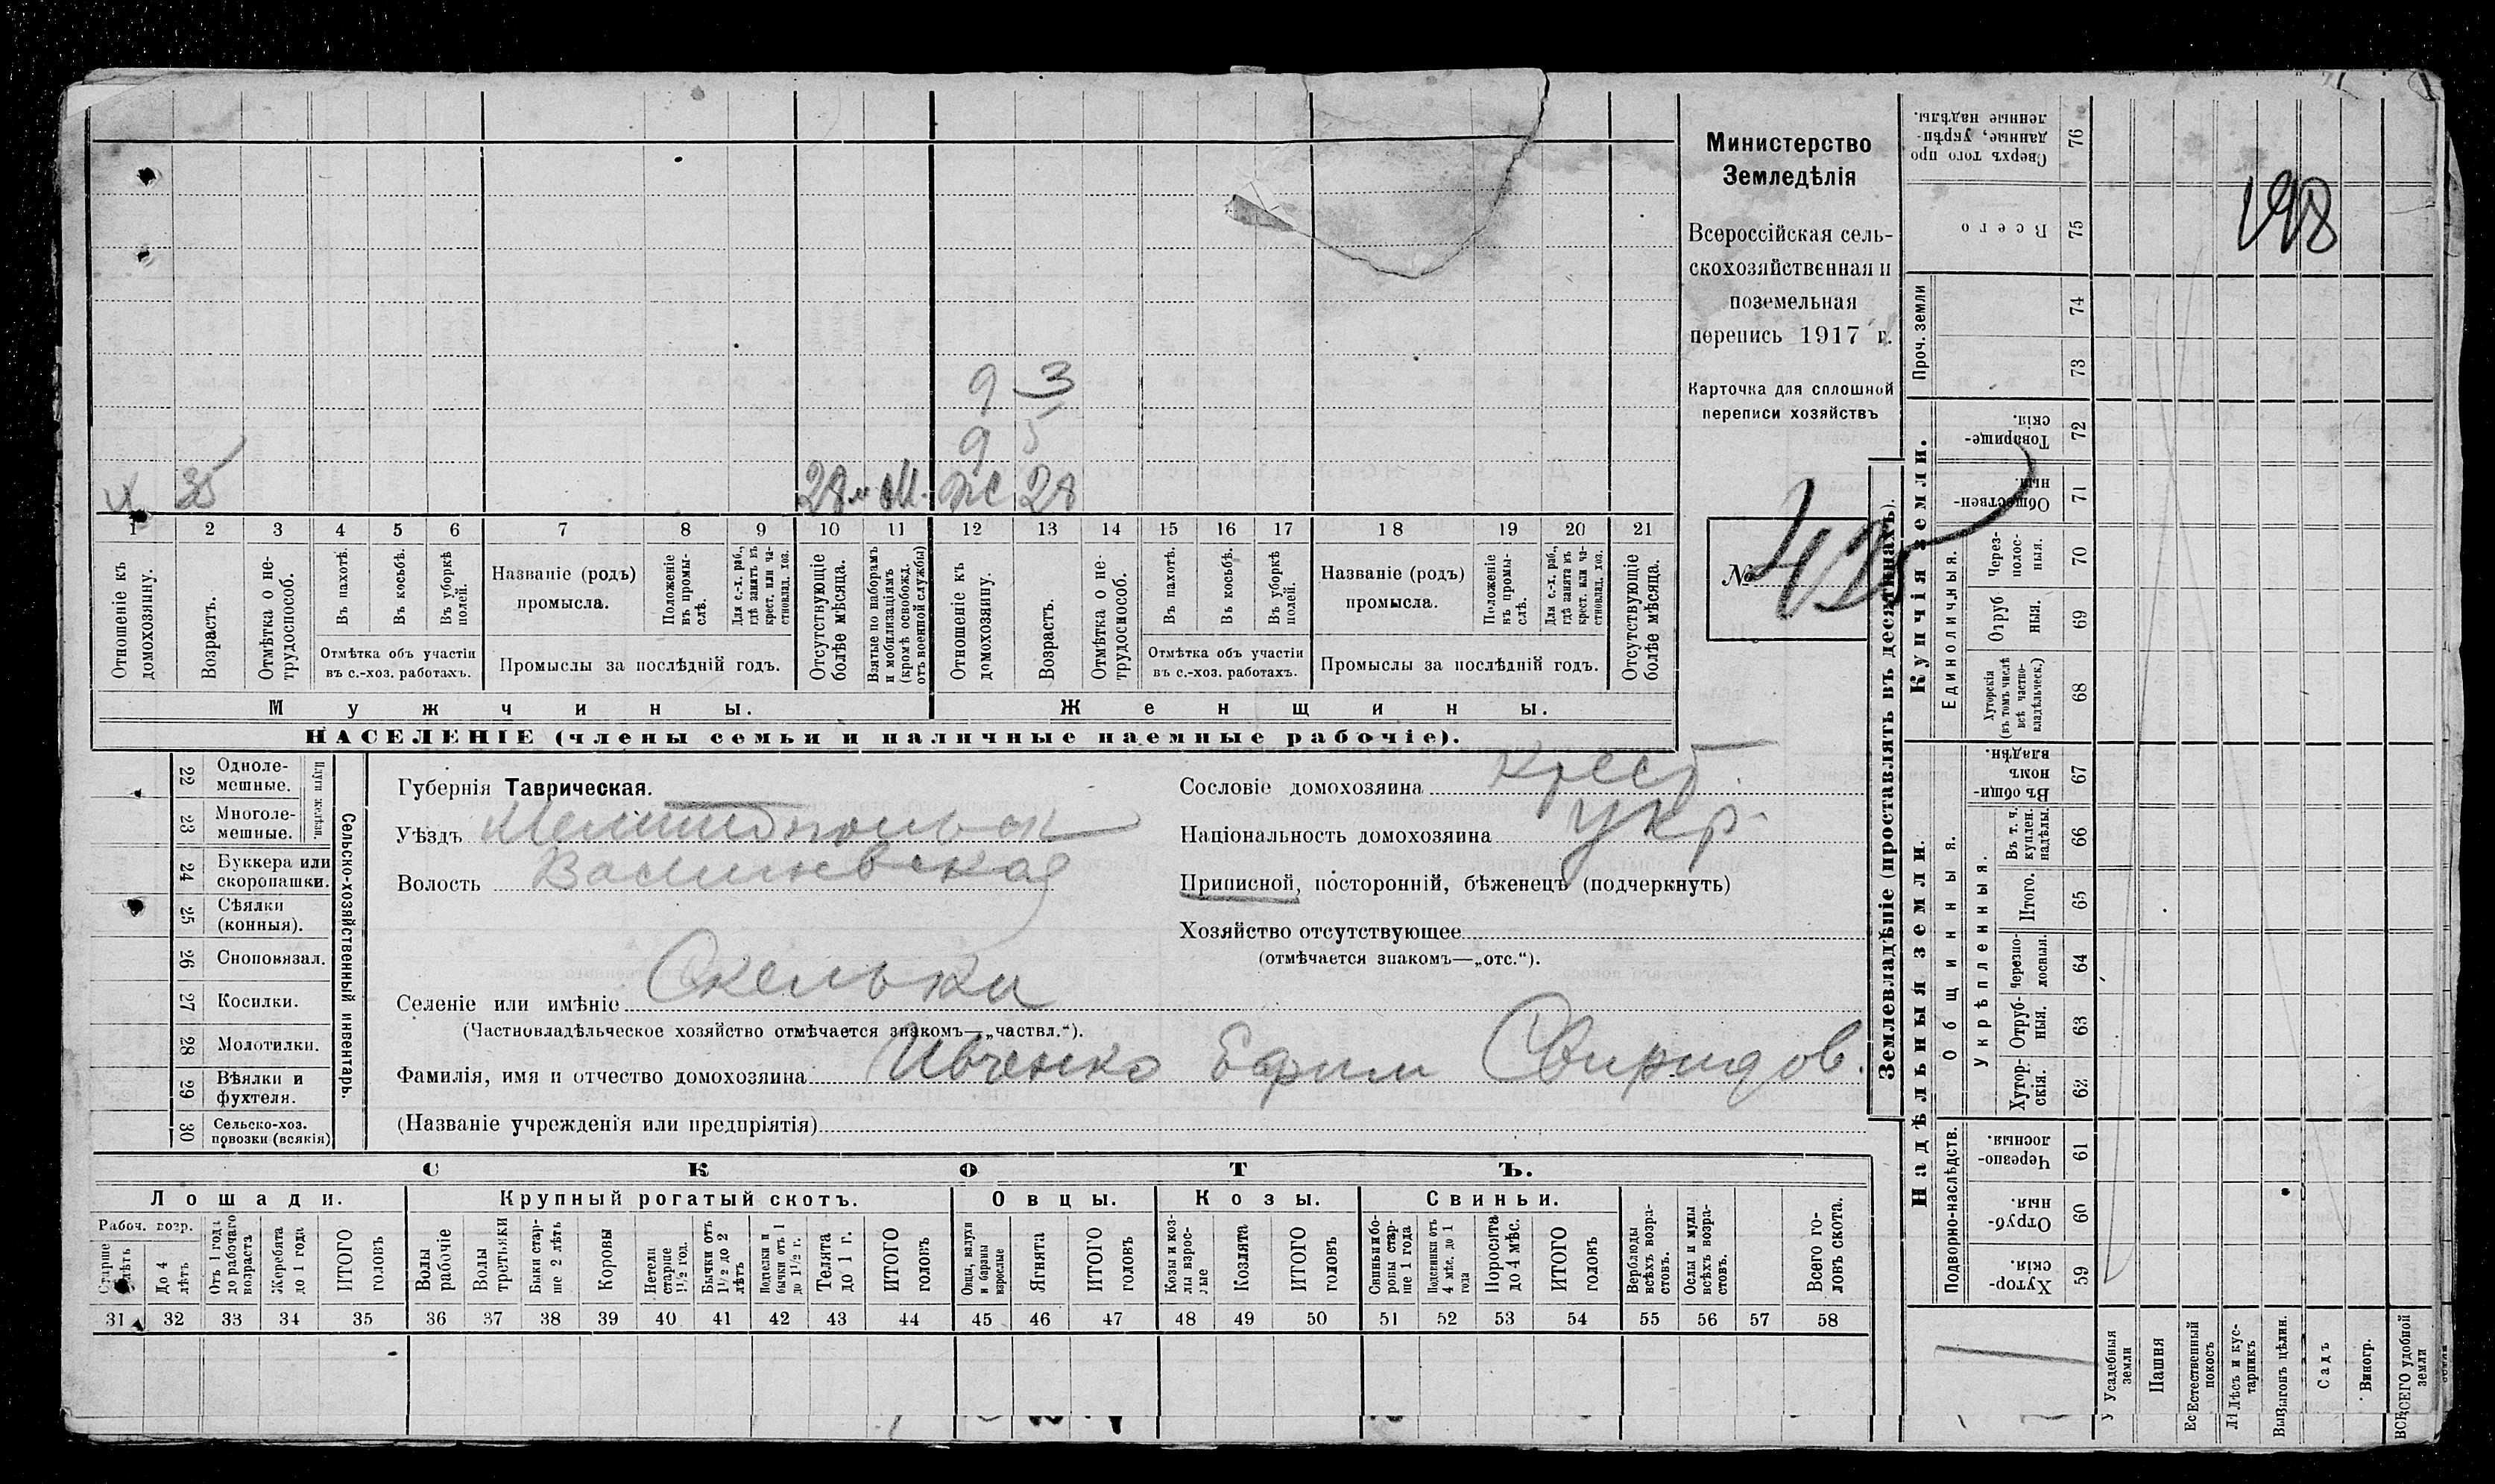 Министерство
Земледѣлія
Всероссійская сель-
скохозяйственная и
поземельная
перепись 1917 г.
Карточка для сплошной
переписи хозяйствъ
№ 425
198
д 3
д 5
х 35 28 м М. ж 28
1 2 3 4 5 6 7 8 9 10 11 12 13 14 15 16 17 18 19 20 21
Отношеніе къ домохозяину.
Возрастъ.
Отмѣтка о не-трудоспособ.
Въ пахотѣ.
Въ косьбѣ.
Въ уборкѣ полей.
Отмѣтка объ участіи
въ с.-хоз. работахъ.
Названіе (родъ)
промысла.
Положеніе въ промы-слѣ.
Для с.-х. раб., гдѣ занятъ въ крест. или ча-стновлад. хоз.
Промыслы за послѣдній годъ.
Отсутствующіе болѣе мѣсяца.
Взятые по наборамъ и мобилизаціямъ (кромѣ освобожд. отъ военной службы)
Отношеніе къ домохозяину.
Возрастъ.
Отмѣтка о не-трудоспособ.
Въ пахотѣ.
Въ косьбѣ.
Въ уборкѣ полей.
Отмѣтка объ участіи
въ с.-хоз. работахъ.
Названіе (родъ)
промысла.
Положеніе въ промы-слѣ.
Для с.-х. раб., гдѣ занята въ крест. или ча-стновлад. хоз.
Промыслы за послѣдній годъ.
Отсутствующіе болѣе мѣсяца.
Мужчины. Женщины.
НАСЕЛЕНІЕ (члены семьи и наличные наемные рабочіе).
Сельско-хозяйственный инвентарь.
22 Однолемешные.
23 Многолемешные.
24 Буккера или скоропашки.
25 Сѣялки (конныя).
26 Сноповязал.
27 Косилки.
28 Молотилки.
29 Вѣялки и фухтеля.
30 Сельско-хоз. повозки (всякія)
Губернія Таврическая.
Уѣздъ Мелитопольск
Волость Василивская
Селеніе или имѣніе Скельки
(Частновладѣльческое хозяйство отмѣчается знакомъ—„частвл.“).
Фамилія, имя и отчество домохозяина Ивченко Ефим Свиридов.
(Названіе учрежденія или предпріятія)
Сословіе домохозяина крест.
Національность домохозяина укр.
Приписной, посторонній, бѣженецъ (подчеркнуть)
Хозяйство отсутствующее
(отмѣчается знакомъ—„отс.“).
СКОТЪ.
Лошади. Крупный рогатый скотъ. Овцы. Козы. Свиньи.
Рабоч. возр.
Старше лѣтъ
До 4 лѣтъ
Отъ 1 года до рабочаго возраста
Жеребята до 1 года
ИТОГО головъ
Волы рабочіе
Волы третьяки
Быки стар-ше 2 лѣтъ
Коровы
Нетели старше 1½ год.
Бычки отъ 1½ до 2 лѣтъ
Подтелки и бычки отъ 1 до 1½ г.
Телята до 1 г.
ИТОГО головъ
Овцы, валухи и бараны взрослые
Ягнята
ИТОГО головъ
Козы и коз-лы взрос-лые
Козлята
ИТОГО головъ
Свиньи и бо-ровы стар-ше 1 года
Подсвинки отъ 4 мѣс. до 1 года
Поросята до 4 мѣс.
ИТОГО головъ
Верблюды всѣхъ возра-стовъ.
Ослы и мулы всѣхъ возра-стовъ.
Всего го-ловъ скота.
31 32 33 34 35 36 37 38 39 40 41 42 43 44 45 46 47 48 49 50 51 52 53 54 55 56 57 58
Землевладѣніе (проставлять въ десятинахъ).
Купчія земли.
Надѣльныя земли.
Сверхъ того про данные, укрѣп-ленные надѣлы. 76
Всего 75
Проч. земли 74 73
Товарище-скія. 72
Обществен-ныя. 71
Единоличныя.
Через-полос-ныя. 70
Отруб ныя. 69
Хуторскія (въ томъ числѣ всѣ частно-владѣльческ.) 68
Общинныя.
Въ общи-номъ владѣн. 67
Укрѣпленныя.
Въ т. ч. куплен. надѣлы. 66
Итого. 65
Черезпо-лосныя. 64
Отруб-ныя. 63
Хутор-скія. 62
Подворно-наслѣдств.
Черезпо-лосныя. 61
Отруб-ныя. 60
Хутор-скія. 59
Усадебныя земли
Пашня
Естественный покосъ
Лѣсъ и кус-тарникъ
Выгонъ цѣлин.
Садъ
Виногр.
ВСЕГО удобной земли